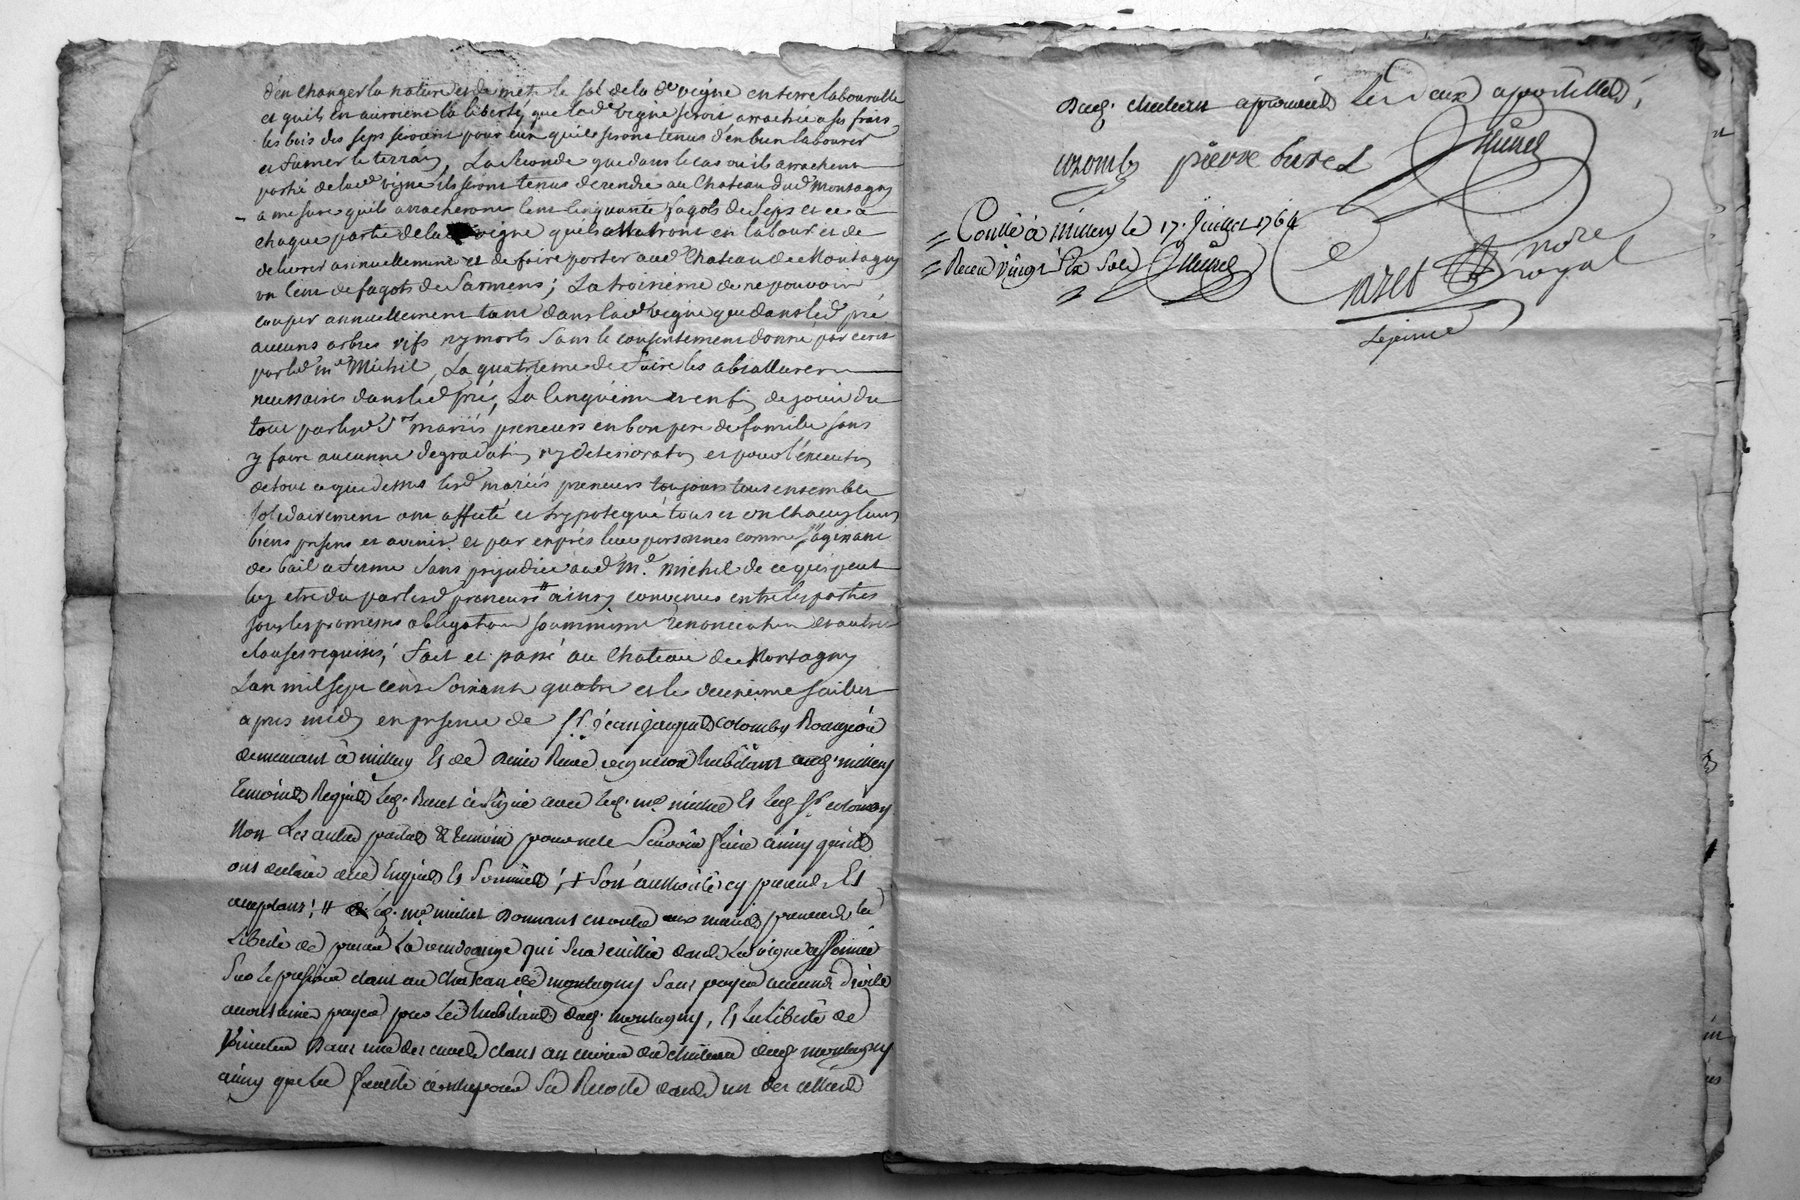 d'en changer la nature et de mettre le sol de la de vigne en terre labourable
et qu'ils en auroient la liberté, que lad vigne seroit arrachée a ses frais
les bois des seps seroient pour eux qu'ils seront tenus d'en bien labourer
et fumer le terrain, La seconde que dans le cas ou ils arrachent
partie de lad vigne ils seront tenus de rendre au Chateau dud Montagny
a mesure quils arracheront cent cinquante fagots de seps et ce a
chaque partie de lad vigne quils mettront en labour et de
delivrer annuellement et de faire porter aud Chateau de Montagny
un cent de fagots de Sarmens; La troisieme de ne pouvoir
couper annuellement tant dans lad vigne que dans led pré
aucuns arbres vifs ny morts sans le consentement donné par ecrit
par led me Michel, La quatrieme de faire les
necessaires dans led pré, La cinquieme et enfin de jouir du
tout par lesd mariés preneurs en bon pere de famille sans
y faire aucunne degradaton ny deterioraton et pour l'execution
de tout ce que dessus lesd mariés preneurs toujours tous ensemble
solidairement ont affecté et hypotequé tous et un chacuns leurs
biens presens et avenir et par exprés leurs personnes comme s'agissant
de bail a ferme sans prejudice aud Me. Michel de ce qui peut
luy etre du par lesd preneurs # ainsy convenus entre les parties
sous les promesses obligations soumissions renonciation et autres
clauses requises, fait et passé au Chateau de Montagny
Lan mil sept cens soixante quatre et le deuxieme juillet
apres midy en presence de Sr. jean jacques colomby Bourgeois
demeurant à millery Et de pierre Buret vigneron habitant aud. millery
temoins Requis led. Buret à signé avec led. me. michel Et led Sr colomby
Non Les autres parties & temoin pour ne le Scavoir faire ainsy quils
ont declaré de ce Enquis Et Sommés; + son authorité cy present Et
acceptant; # led. me michel Donnant en outre aux mariés preneurs la
liberté de presser La vendange qui sera cuillie dans La vigne affermée
Sur le pressoir etant au chateau de montagny sans payer aucuns droits
accoutumés payer par Les habitans dud. montagny, Et La liberté de
dans une des cuves etant au cuvier du chateau dud. montagny
ainsy que La faculté d'entreposer sa Recolte dans un des celliers
dud. chateau approuvés Les deux apostilles,
colomby pierre buret Michel
Conllé à millery le 17. Juillet 1764
Recu vingt Six Sols Michel
nore royal